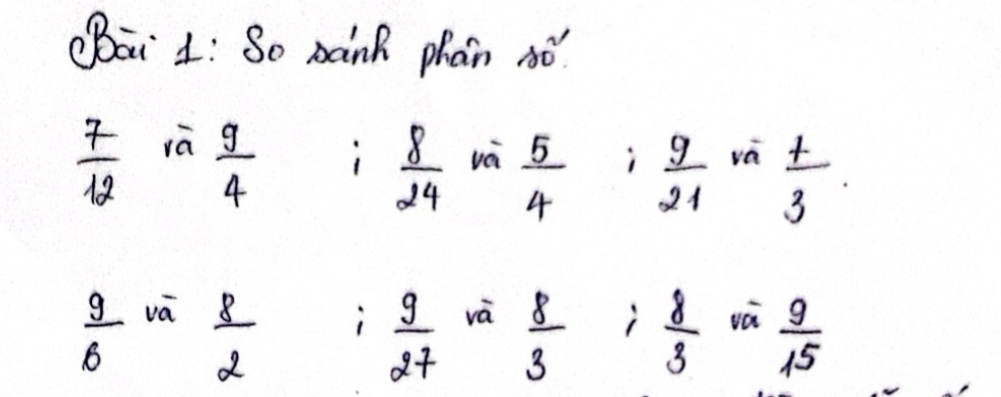 Bài 1: So sánh phân số.
7/12 và 9/4 ; 8/24 và 5/4 ; 9/21 và 1/3.
9/6 và 8/2 ; 9/27 và 8/3 ; 8/3 và 9/15